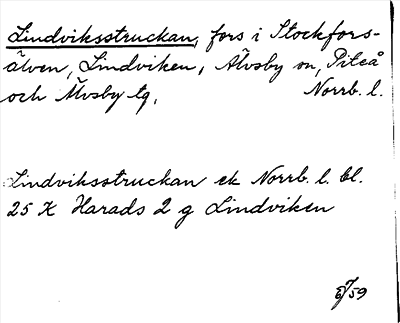 Lindviksstruckan, fors i Stockfors-
älven, Lindviken, Älvsby sn, Piteå
och Älvsby tg, Norrb. l.
Lindviksstruckan ek Norrb. l. bl.
25 K Harads 2 g Lindviken
59